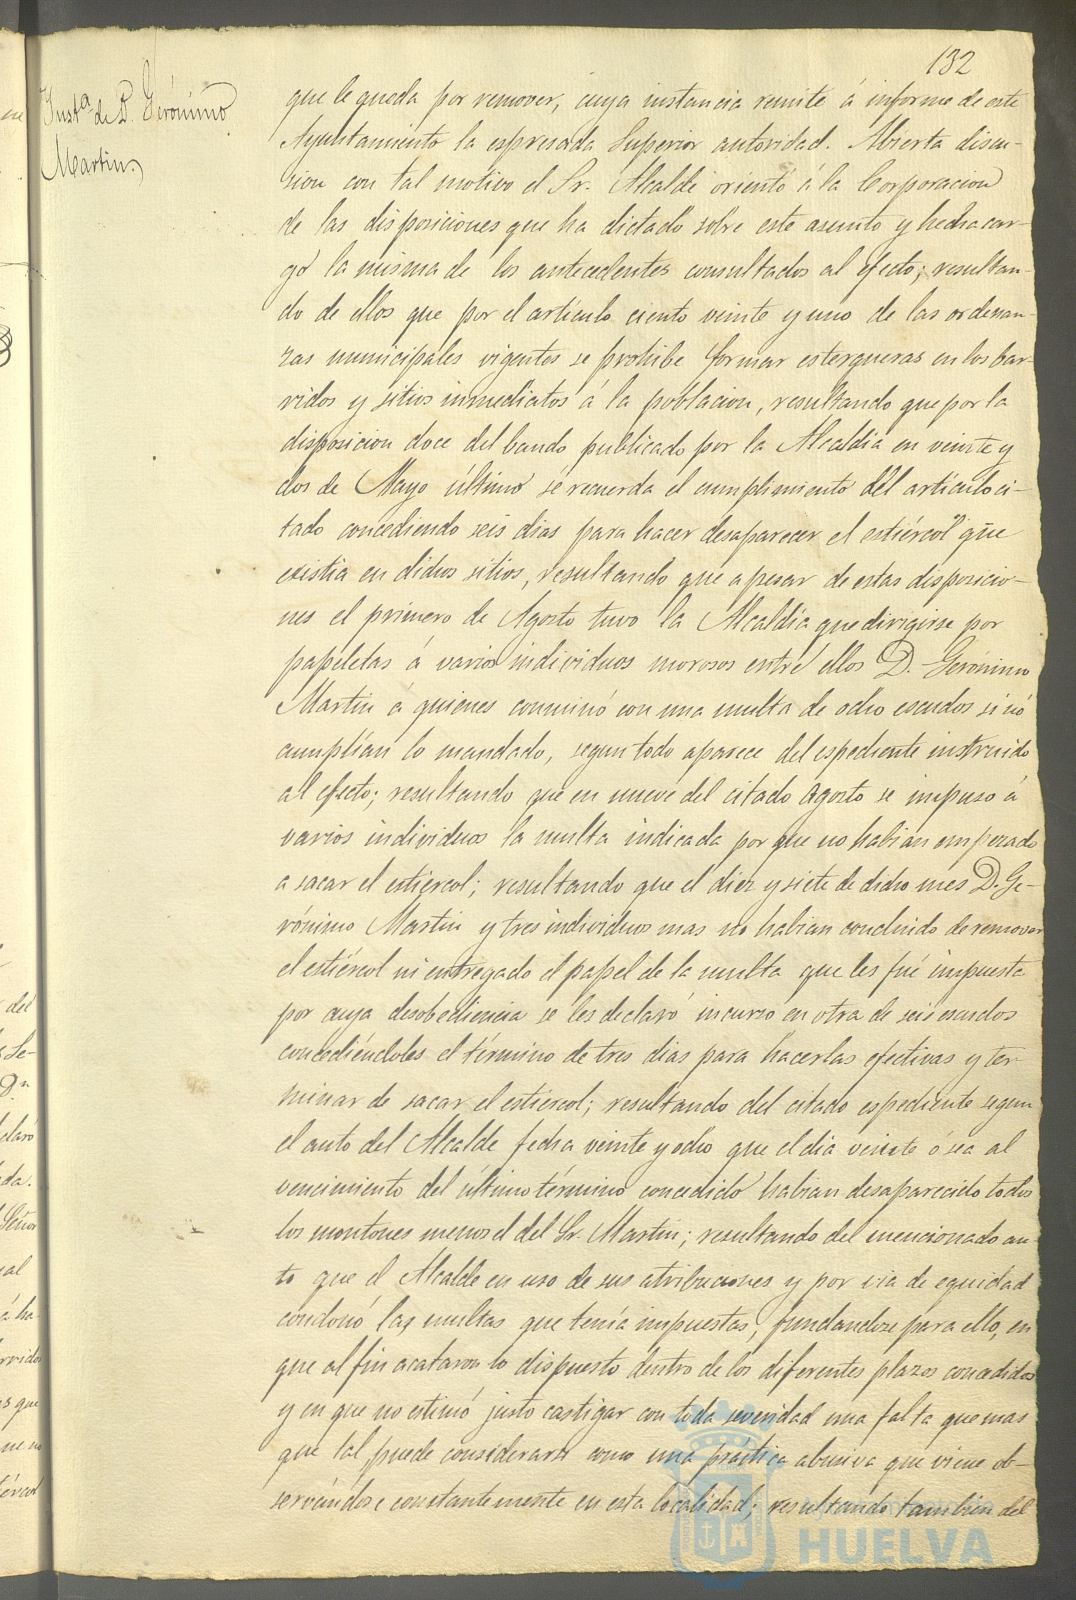 132
Inst.ª de D. Gerónimo
Martin.
que le queda por remover, cuya instancia remite á informe de este
Ayuntamiento la espresada Superior autoridad. Abierta discu-
sion con tal motivo el Sr. Alcalde orientó á la Corporacion
de las disposiciones que ha dictado sobre este asunto y hecha car-
go la misma de los antecedentes consultados al efecto; resultan-
do de ellos que por el artículo ciento veinte y uno de las ordenan-
zas municipales vigentes se prohibe formar esterqueras en los bar-
vidos y sitios inmediatos á la poblacion, resultando que por la
disposicion doce del bando publicado por la Alcaldia en veinte y
dos de Mayo último se recuerda el cumplimiento del artículo ci-
tado concediendo seis dias para hacer desaparecer el estiércol que
existia en dichos sitios, resultando que apesar de estas disposicio-
nes el primero de Agosto tuvo la Alcaldía que dirigirse por
papeletas á varios individuos morosos entre ellos D. Gerónimo
Martin á quienes conminó con una multa de ocho escudos si nó
cumplían lo mandado, segun todo aparece del espediente instruido
al efecto; resultando que en nueve del citado Agosto se impuso á
varios individuos la multa indicada por que no habian empezado
a sacar el estiércol; resultando que el diez y siete de dicho mes D. Ge-
rónimo Martin y tres individuos mas no habian concluido de remover
el estiércol ni entregado el papel de la multa que les fué impuesta
por cuya desobediencia se les declaró incurso en otra de seis escudos
concediéndoles el término de tres dias para hacerlas efectivas y ter-
minar de sacar el estiércol; resultando del citado espediente segun
el auto del Alcalde fecha veinte y ocho que el dia veinte ó sea al
vencimiento del último término concedido habian desaparecido todos
los montones menos el del Sr. Martin; resultando del mencionado au-
to que el Alcalde en uso de sus atribuciones y por via de equidad
condonó las multas que tenía impuestas, fundandose para ello, en
que al fin acataron lo dispuesto dentro de los diferentes plazos concedidos
y en que no estimó justo castigar con toda severidad una falta que mas
que tal puede considerarse como una práctica abusiva que viene ob-
servándose constantemente en esta localidad; resultando tambien del
HUELVA